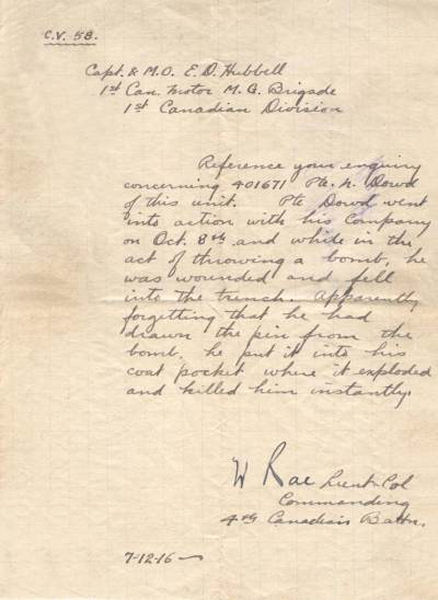 C.V. 58.
Capt. & M.O. E. D. Hubbell
1st Can. Motor M. G. Brigade
1st Canadian Division
Reference your enquiry
concerning 401671 Pte. N. Dowd
of this unit. Pte Dowd went
into action with his Company
on Oct. 8th and while in the
act of throwing a bomb, he
was wounded and fell
into the trench. Apparently
forgetting that he had
drawn the pin from the
bomb, he put it into his
coat pocket where it exploded
and killed him instantly.
W Rae Lieut-Col
Commanding
4th Canadian Battn.
7-12-16